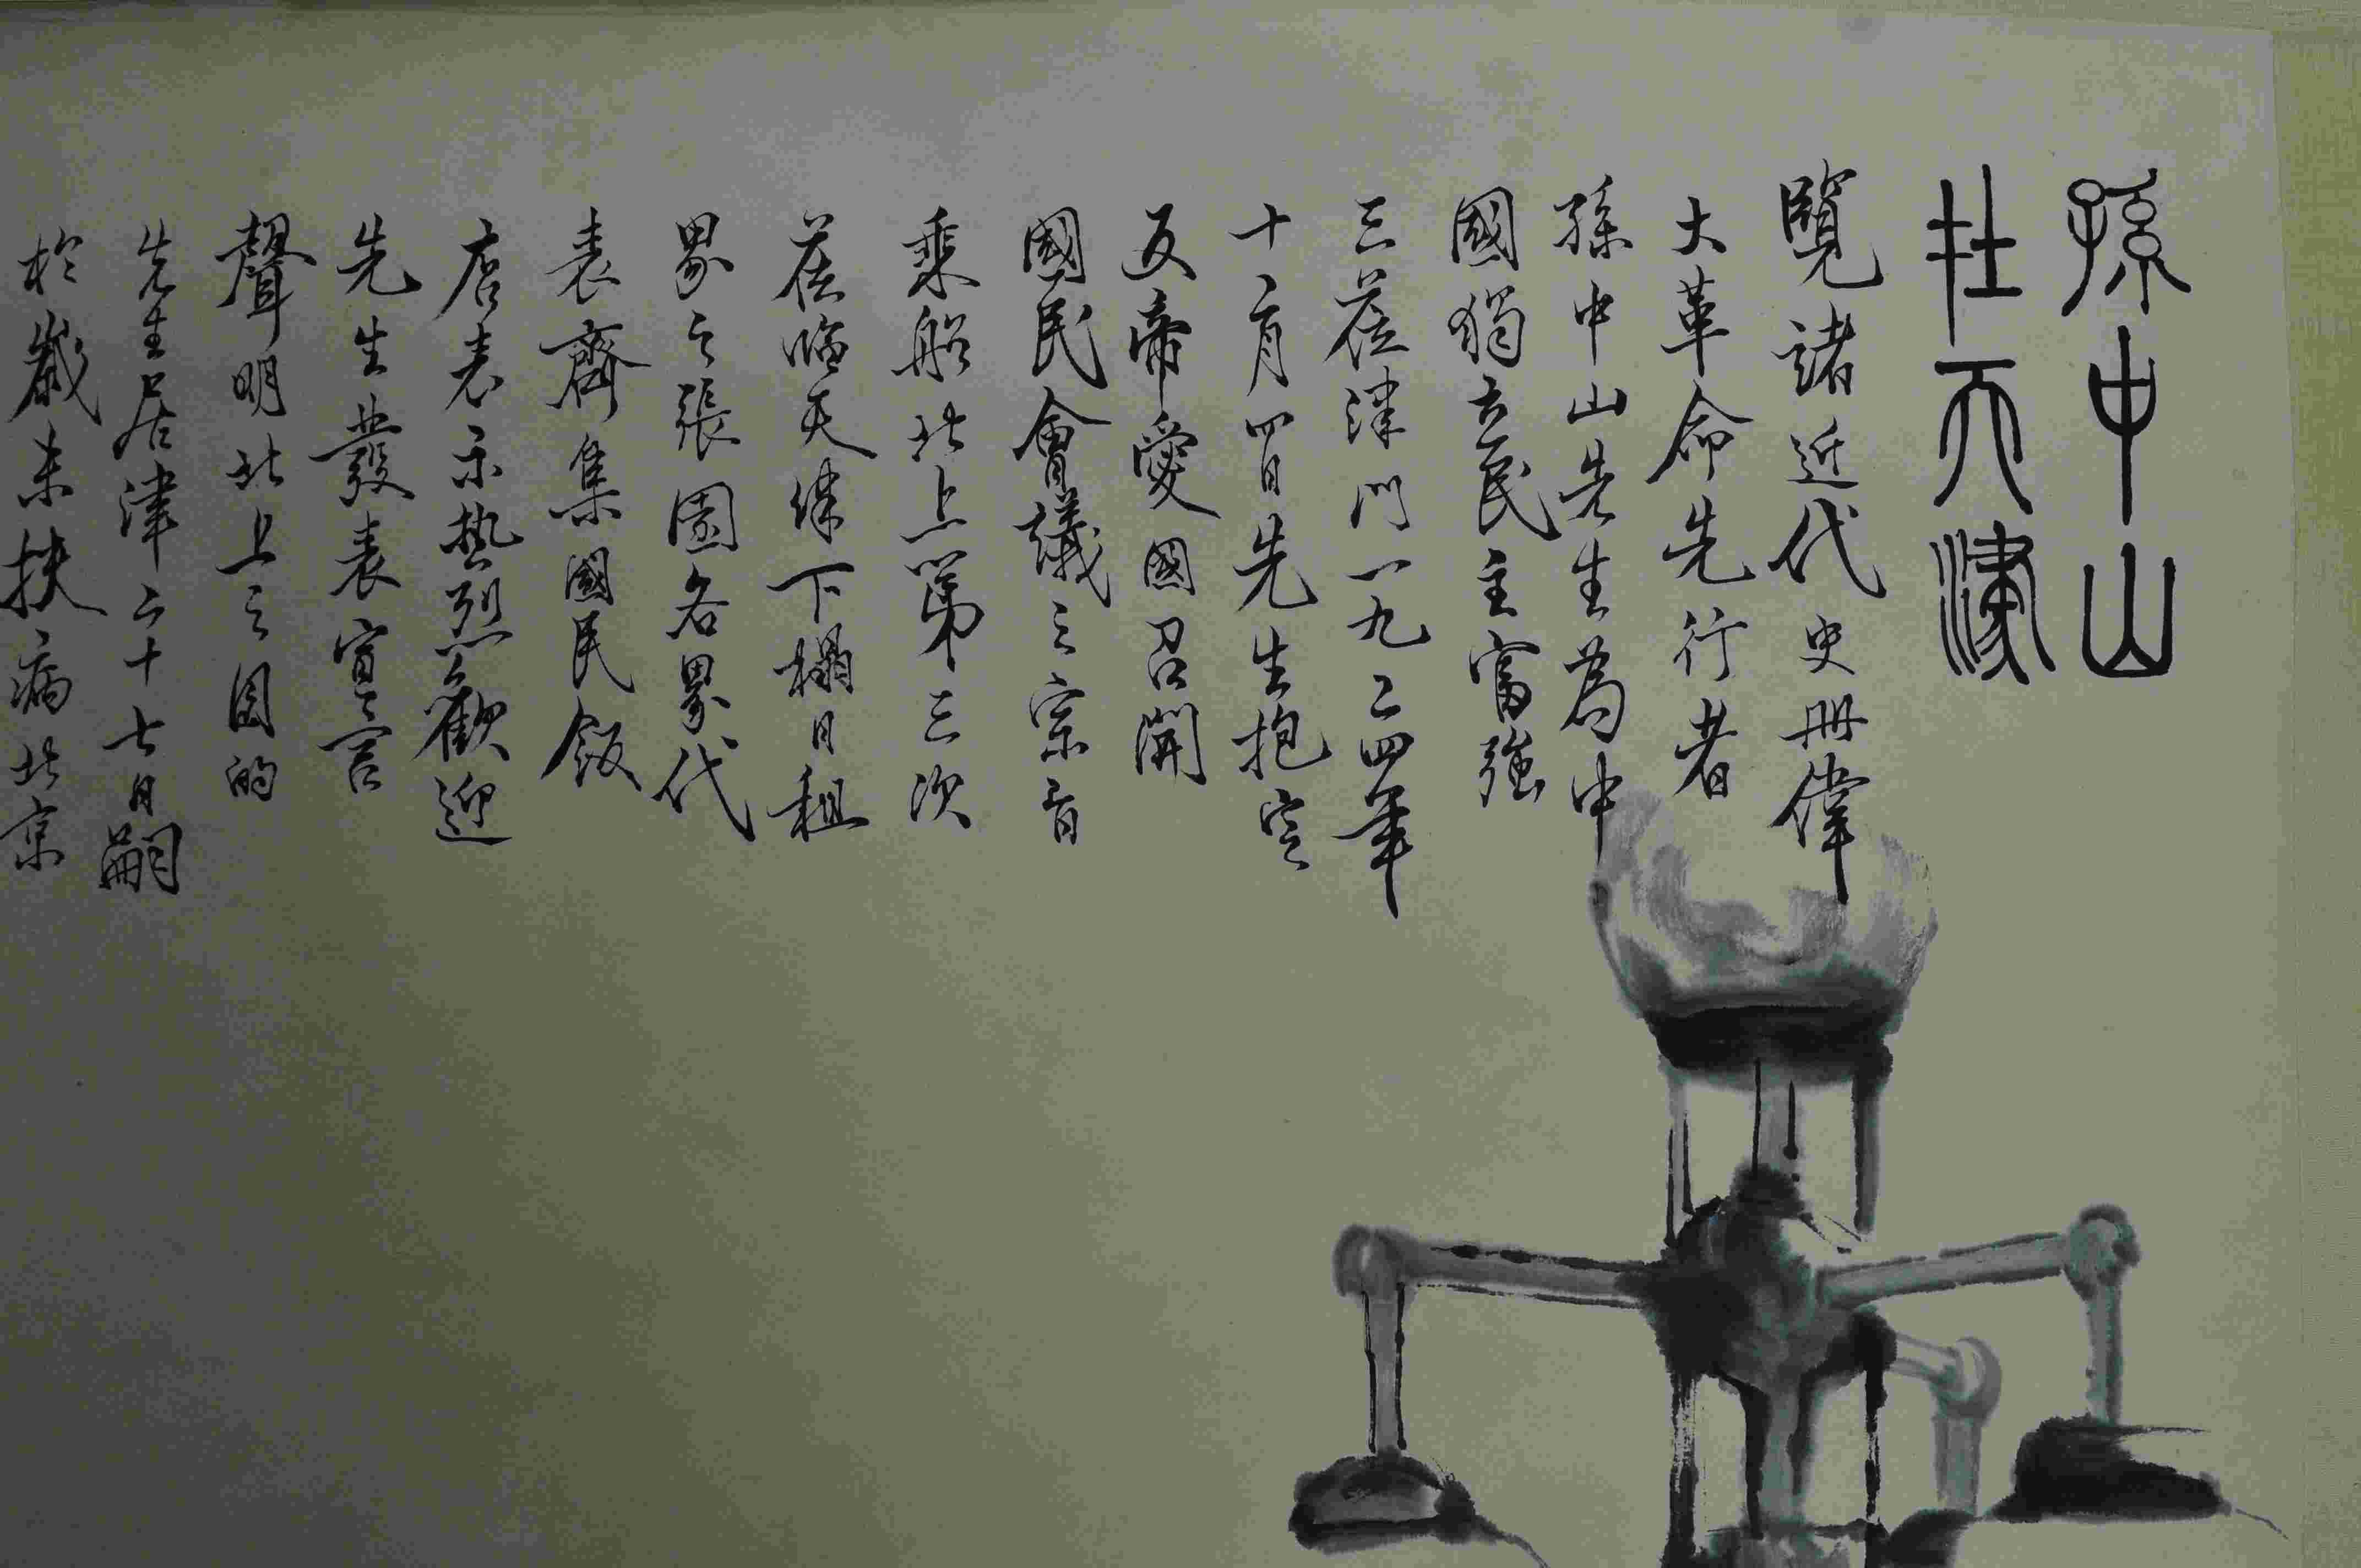 孫中山
在天津
覽諸近代史冊偉
大革命先行者
孫中山先生為中
國獨立民主富強
三蒞津門一九二四年
十二月四日先生抱定
反帝愛國召開
國民會議之宗旨
乘船北上第三次
蒞臨天津下榻日租
界之張園各界代
表齊集國民飯
店表示熱烈歡迎
先生發表宣言
聲明北上之目的
先生居津二十七日嗣
於歲末扶病北京